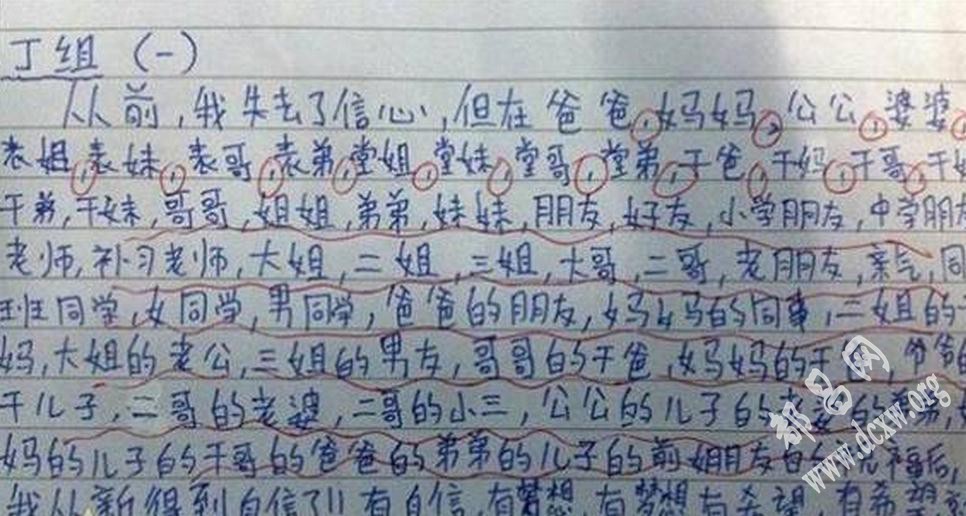 丁组（一）
从前,我失去了信心,但在爸爸,妈妈,公公,婆婆
表姐,表妹,表哥,表弟,堂姐,堂妹,堂哥,堂弟,干爸,干妈,干哥,干
干弟,干妹,哥哥,姐姐,弟弟,妹妹,朋友,好友,小学朋友,中学朋友
老师,补习老师,大姐,二姐,三姐,大哥,二哥,老朋友,亲气,同
班同学,女同学,男同学,爸爸的朋友,妈妈的同事,二姐的干
妈,大姐的老公,三姐的男友,哥哥的干爸,妈妈的干,爷爷的
干儿子,二哥的老婆,二哥的小三,公公的儿子的老婆的
妈的儿子的干哥的爸爸的弟弟的儿子的前朋友的祝福后,
我从新得到自信了!!有自信,有梦想,有梦想有希望,有希望
都昌网
www.dcxw.org